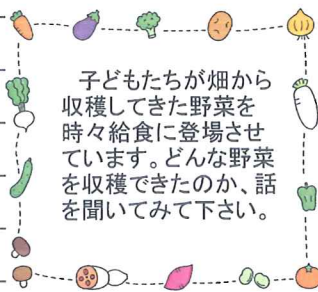 子どもたちが畑から
収穫してきた野菜を
時々給食に登場させ
ています。どんな野菜
を収穫できたのか、話
を聞いてみて下さい。